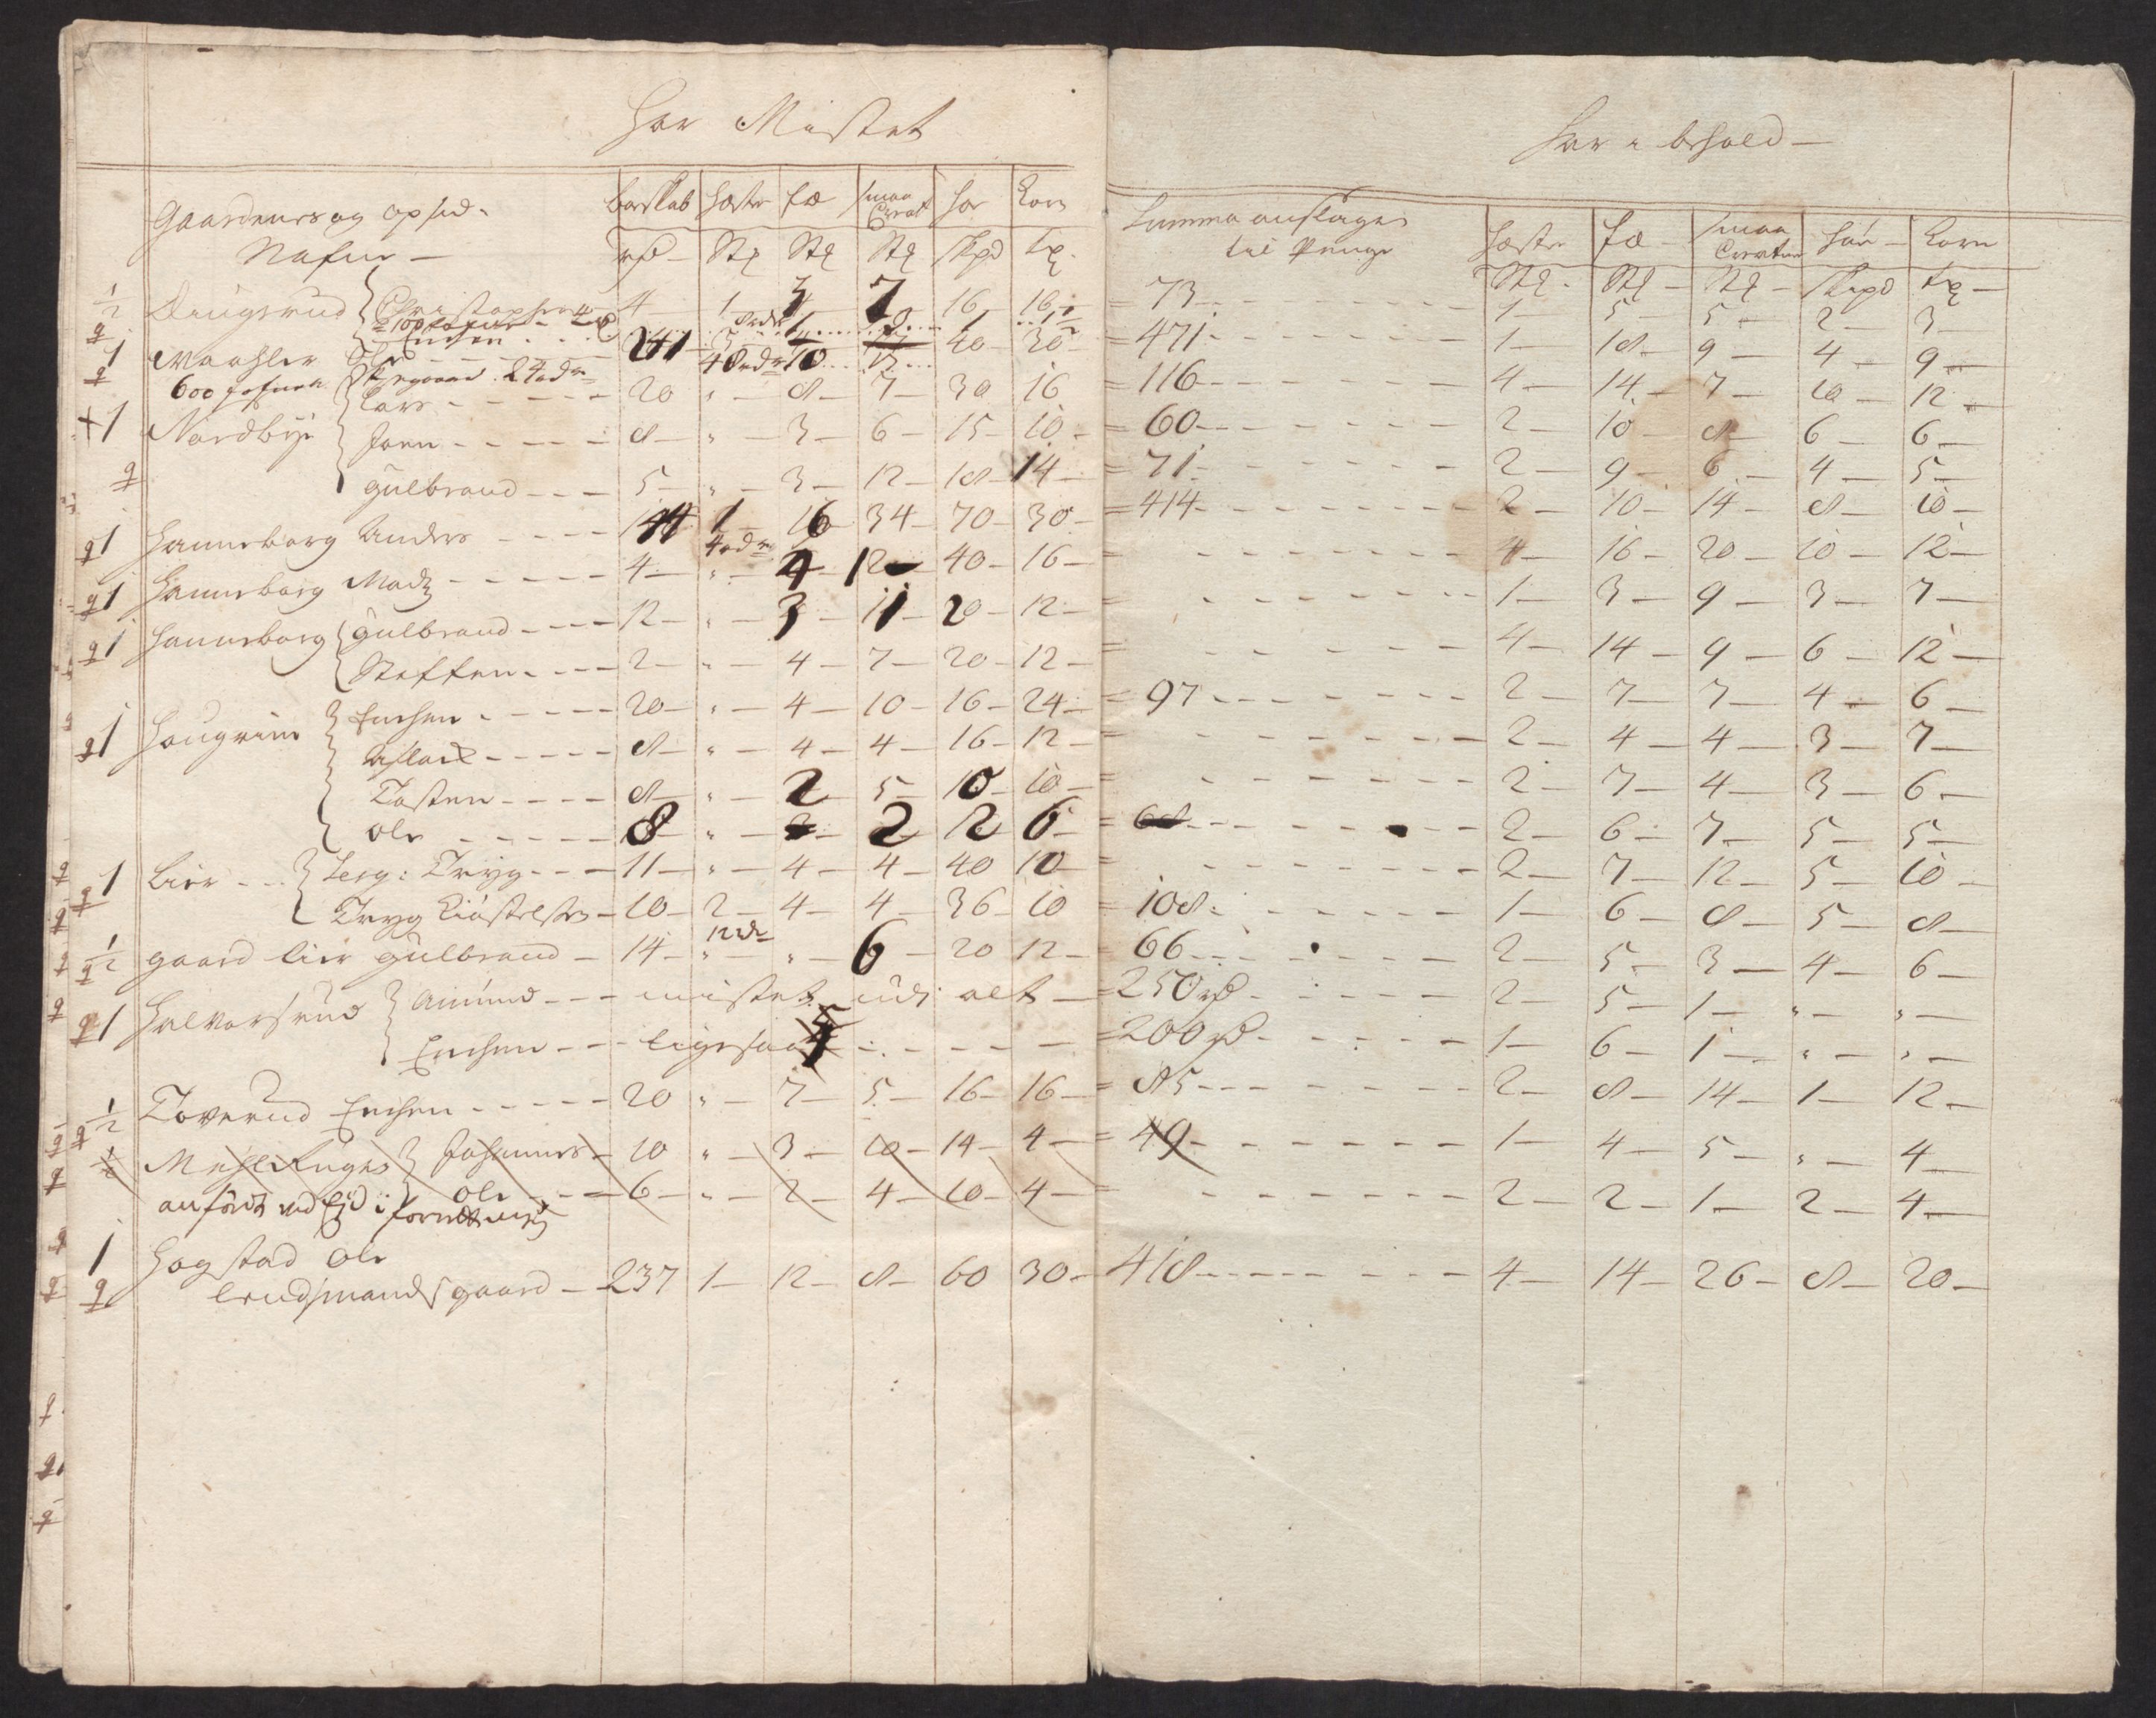 Har Mistet
Gaardenes og opsid. Nafne — boeskab Hæste fæ smaa Creat Hø Korn
rd — St St St Skpd Tr
1/2 Christopher 4 1 3 7 16 16
1 Ole 241 3 10 40 20
600 Lars 20 " 8 7 30 16
+1 Nordbÿe Joen 8 " 3 6 15 10
Gulbrand 5 " 3 12 18 14
1 Hanneborg Anders 144 1 16 34 70 30
1 Hanneborg Madz 4 " 4 12 40 16
1 Hanneborg Gulbrand 12 " 3 11 20 12
Steffen 2 " 4 7 20 12
1 Haugrim Erichen 20 " 4 10 16 24
AsLack 8 " 4 4 16 12
Tosten 8 " 2 5 10 10
Ole 8 " 2 12 6
1 Lier Terg: Tryg 11 " 4 4 40 10
Tryg 10 2 4 4 36 10
1/2 gaard Lier Gulbrand 14 " " 6 20 12
1 Halvorsrud Amund mistet alt
Erichen ligesaa
1/2 Toverud Erichen 20 " 7 5 16 16
Johannes 10 " 3 10 14 4
Ole 6 " 2 4 10 4
1 Hogstad Ole
Lendsmands gaard 237 1 12 8 60 30
Har i behold —
Summa anslagen til Penge Hæste fæ Smaa Creature Høe Korn
St St St Skpd Tr
= 73 1 5 5 2 3
= 471 1 18 9 4 9
= 116 4 14 7 10 12
= 60 2 10 8 6 6
= 71 2 9 6 4 5
= 414 2 10 14 8 10
= 4 16 20 10 12
= 1 3 9 3 7
= 4 14 9 6 12
= 97 2 7 7 4 6
= 2 4 4 3 7
= 2 7 4 3 6
= 68 2 6 7 5 5
= 2 7 12 5 10
= 108 1 6 8 5 8
= 66 2 5 3 4 6
= 250 rd 2 5 1 " "
= 200 rd 1 6 1 " "
= 85 2 8 14 1 12
= 49 1 4 5 " 4
= 2 2 1 2 4
418 4 14 26 8 20